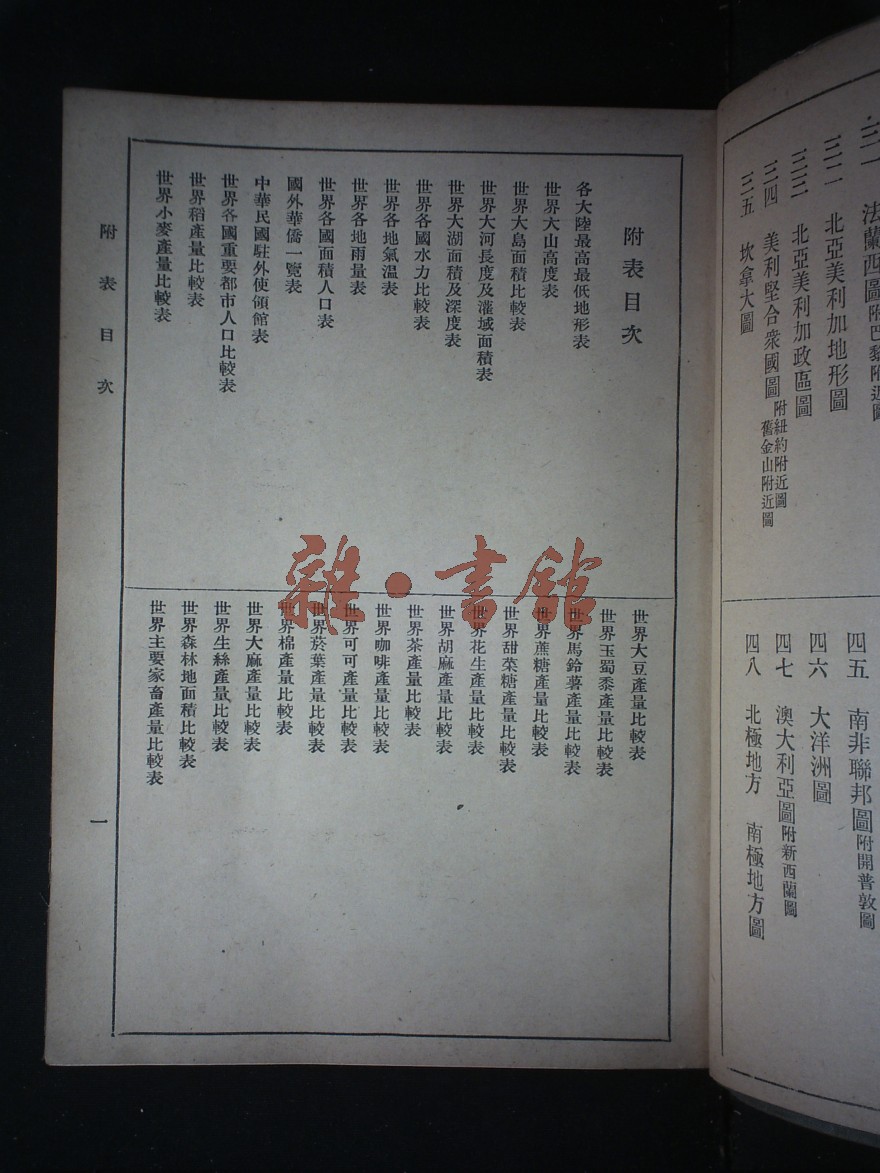 三一 法蘭西圖附巴黎附近圖
三二 北亞美利加地形圖
三三 北亞美利加政區圖
三四 美利堅合衆國圖附紐約附近圖舊金山附近圖
三五 坎拿大圖
四五 南非聯邦圖附開普敦圖
四六 大洋洲圖
四七 澳大利亞圖附新西蘭圖
四八 北極地方 南極地方圖
附表目次
各大陸最高最低地形表
世界大山高度表
世界大島面積比較表
世界大河長度及灌域面積表
世界大湖面積及深度表
世界各國水力比較表
世界各地氣溫表
世界各地雨量表
世界各國面積人口表
國外華僑一覽表
中華民國駐外使領館表
世界各國重要都市人口比較表
世界稻產量比較表
世界小麥產量比較表
世界大豆產量比較表
世界玉蜀黍產量比較表
世界馬鈴薯產量比較表
世界蔗糖產量比較表
世界甜菜糖產量比較表
世界花生產量比較表
世界胡麻產量比較表
世界茶產量比較表
世界咖啡產量比較表
世界可可產量比較表
世界菸葉產量比較表
世界棉產量比較表
世界大麻產量比較表
世界生絲產量比較表
世界森林地面積比較表
世界主要家畜產量比較表
附表目次
一
雜·書館